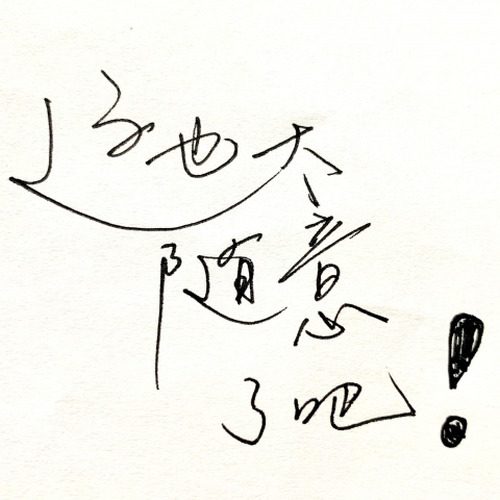 这也太
随意
了吧!